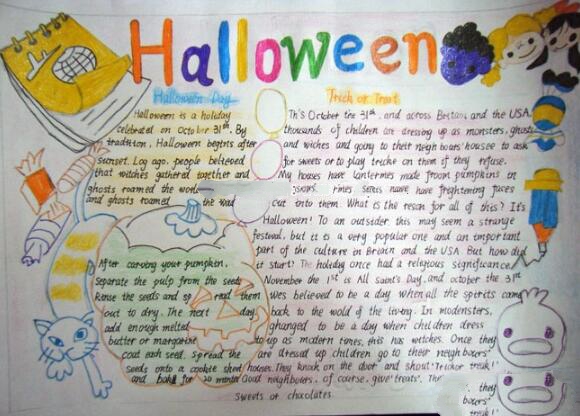 Halloween
Halloween Day
Halloween is a holiday
celebrated on october 31th. By
tradition, Halloween begints after
sunset. Log ago, people believed
that witches gathered together and
ghosts roamed the worl
and ghosts roamed the wad
After carving your pumpkin,
Separate the pulp from the seed
Rinse the seeds and sp read them
out to dry. The next day
add enough melted
butter or margarine
coat each seed. spread the
seeds onto a cookie sheet
and bake for 20 minutes
Trick or Treat
Th's October the 31th, and across Britain and the USA,
thousands of children are dressing up as monsters, ghosts
and witches and going to their neigh bours' housee to ask
for sweets or to play tricke on them if they refuse.
My houses have lantermes made froom pumpkins in
rimes seeus have have frightening faces
cut into them. What is the reson for all of this? It's
Halloween! To an outsider this may seem a strange
festeval, but it is a very popular one and an important
part of the culture in Britain and the USA. But how did
it start? The holiday once had a religious significance
November the 1st is All saint's Day, and october the 31st
wes believed to be a day when all the spirits came
back to the wold of the living. In modensters,
ghanged to be a day when children dress
up as modern times, this has witches. Once they
are dressed up children go to their neighbours'
houses. They knock on the door and shout 'Trick or treak!'
Good neighbours, of course, give 'treats'. The
they
sweets or chocolates.